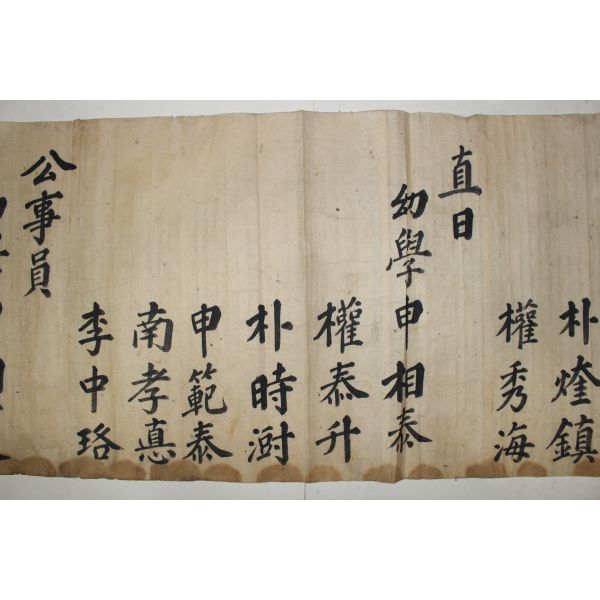 朴煃鎮
權秀海
直日
幼學申相泰
權泰升
朴時澍
申範泰
南孝悳
李中珞
公事員